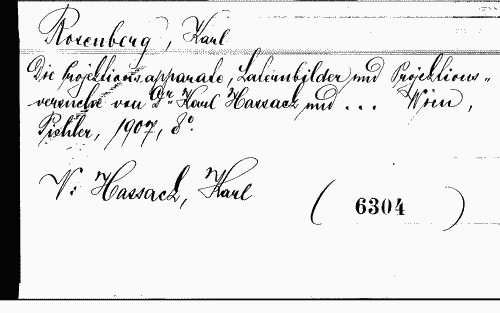 Rosenberg, Karl
Die Projektionsapparate, Laternbilder und Projektions-
versuche von Dr. Karl Hassack und ... Wien,
Pichler, 1907, 8°.
V: Hassack, Karl
(6304)